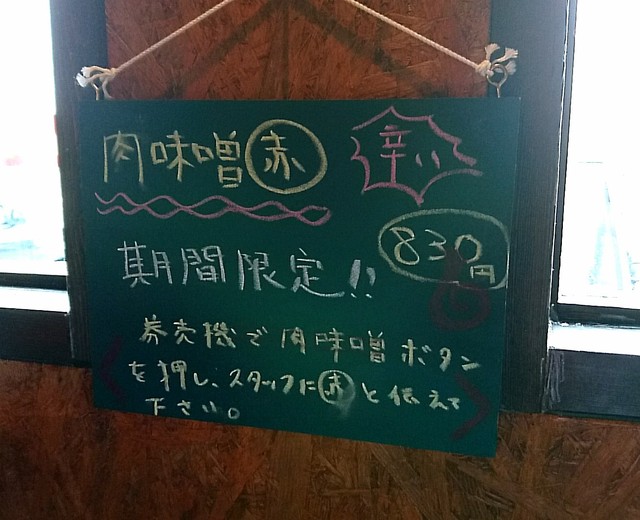 肉味噌赤 辛い
830円
期間限定!!
券売機で肉味噌ボタン
を押し、スタッフに赤と伝えて
下さい。